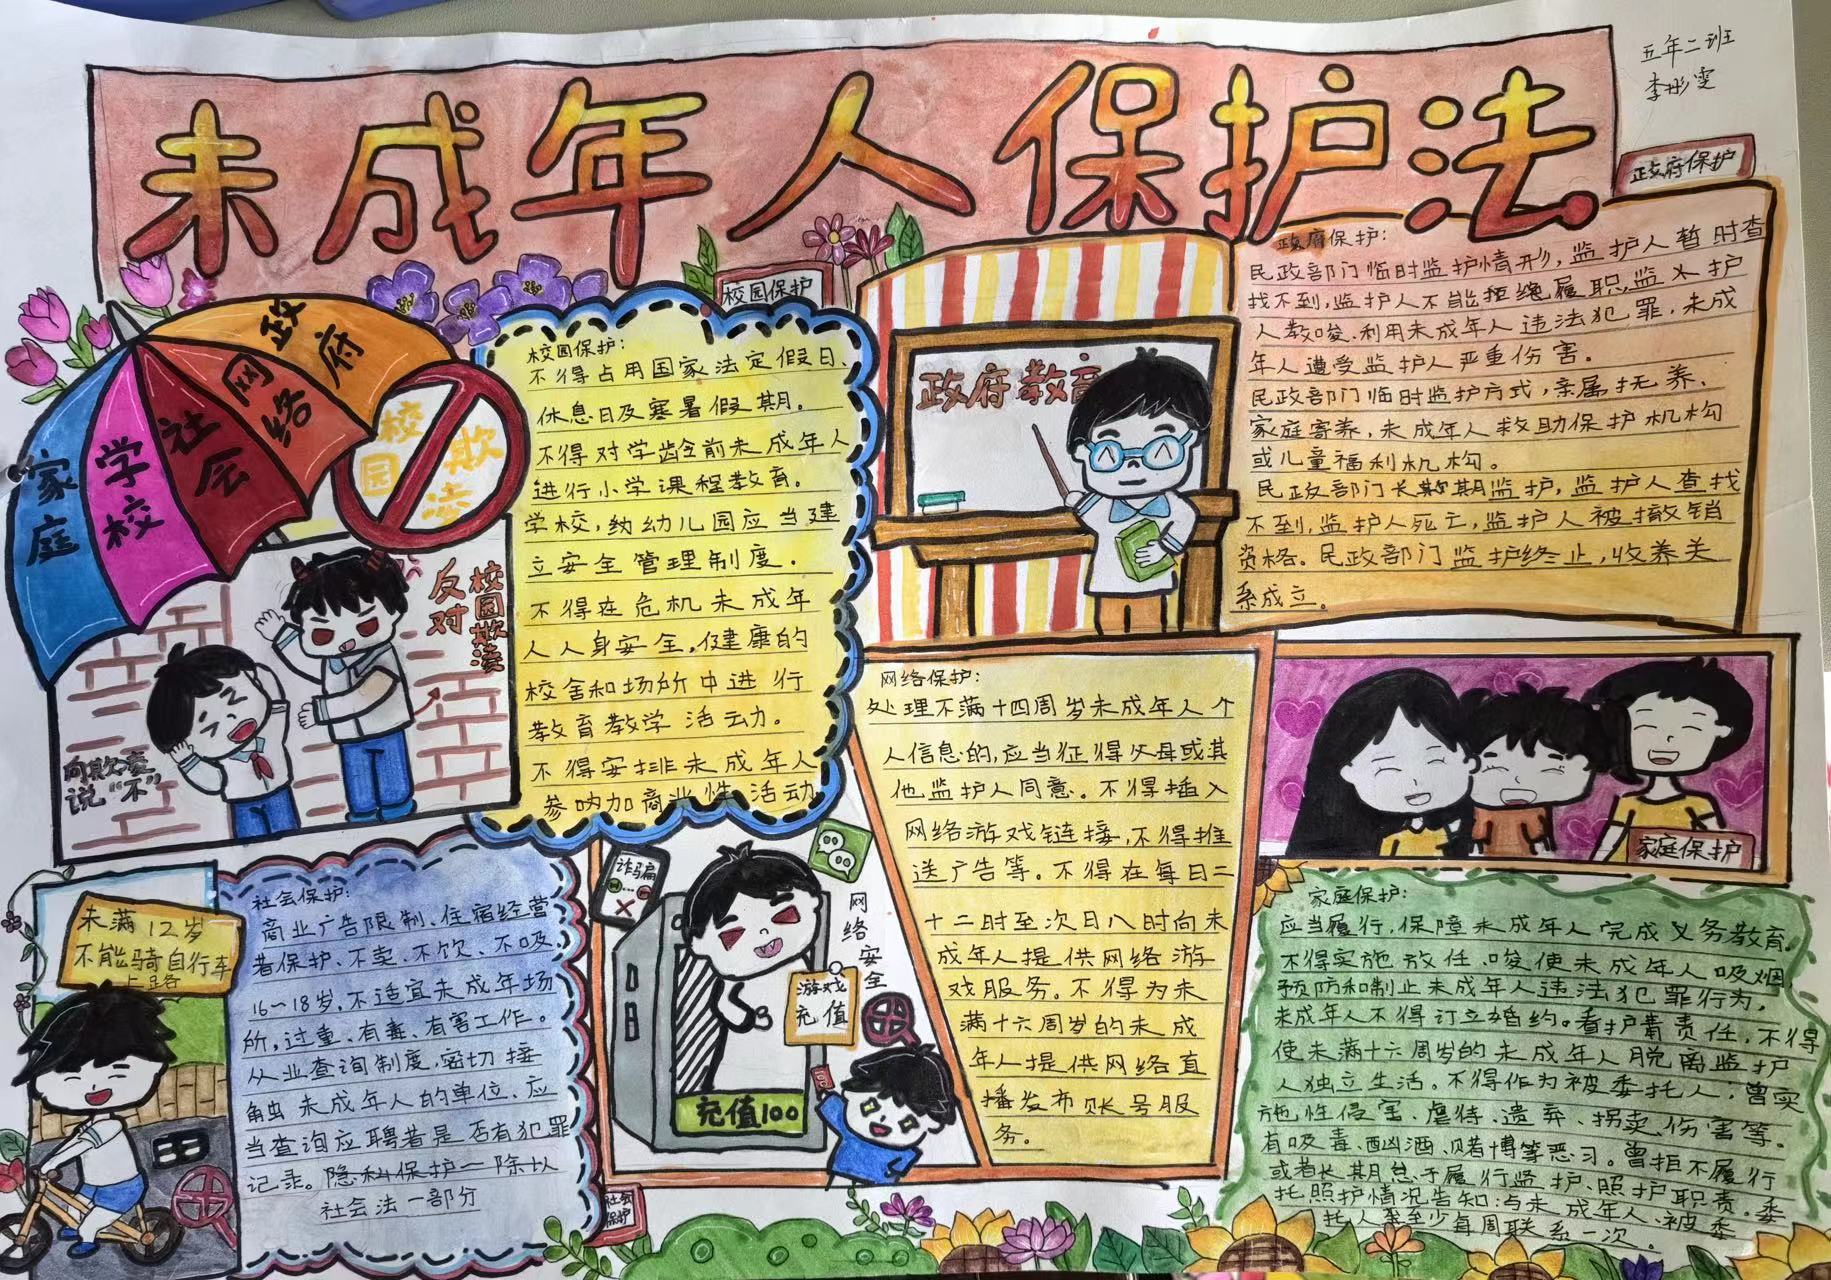 五年二班
李彤雯
未成年人保护法
政府保护
政府保护:
民政部门临时监护情形，监护人暂时查
找不到，监护人不能拒绝履职，监火护
人教唆、利用未成年人违法犯罪，未成
年人遭受监护人严重伤害。
民政部门临时监护方式，亲属抚养、
家庭寄养，未成年人救助保护机构
或儿童福利机构。
民政部门长期监护，监护人查找
不到，监护人死亡，监护人被撤销
资格。民政部门监护终止，收养关
系成立。
政府教育
校园保护
校园保护:
不得占用国家法定假日、
休息日及寒暑假期。
不得对学龄前未成年人
进行小学课程教育。
学校，幼儿园应当建
立安全管理制度.
不得在危机未成年
人人身安全，健康的
校舍和场所中进行
教育教学活动。
不得安排未成年人
参加商业性活动
家庭
学校
社会
网络
政府
校园
欺凌
反对
校园欺凌
向欺凌
说“不”
网络保护:
处理不满十四周岁未成年人个
人信息的,应当征得父母或其
他监护人同意。不得插入
网络游戏链接，不得推
送广告等。不得在每日二
十二时至次日八时向未
成年人提供网络游
戏服务。不得为未
满十六周岁的未成
年人提供网络直
播发布账号服
务。
诈骗
网络安全
游戏
充值
充值100
家庭保护
家庭保护:
应当履行,保障未成年人完成义务教育.
不得实施放任、唆使未成年人吸烟,
预防和制止未成年人违法犯罪行为,
未成年人不得订立婚约。看护责任,不得
使未满十六周岁的未成年人脱离监护
人独立生活。不得作为被委托人；曾实
施性侵害、虐待、遗弃、拐卖、伤害等.
有吸毒、酗酒、赌博等恶习。曾拒不履行
或者长期怠于履行监护、照护职责.委
托照护情况告知；与未成年人、被委
托人至少每周联系一次.
未满12岁
不能骑自行车
上路
社会保护:
商业广告限制、住宿经营
者保护、不卖、不饮、不吸、
16~18岁,不适宜未成年场
所,过重、有毒、有害工作。
从业查询制度,密切接
触未成年人的单位、应
当查询应聘者是否有犯罪
记录。隐私保护一除以
社会法一部分
社会
保护